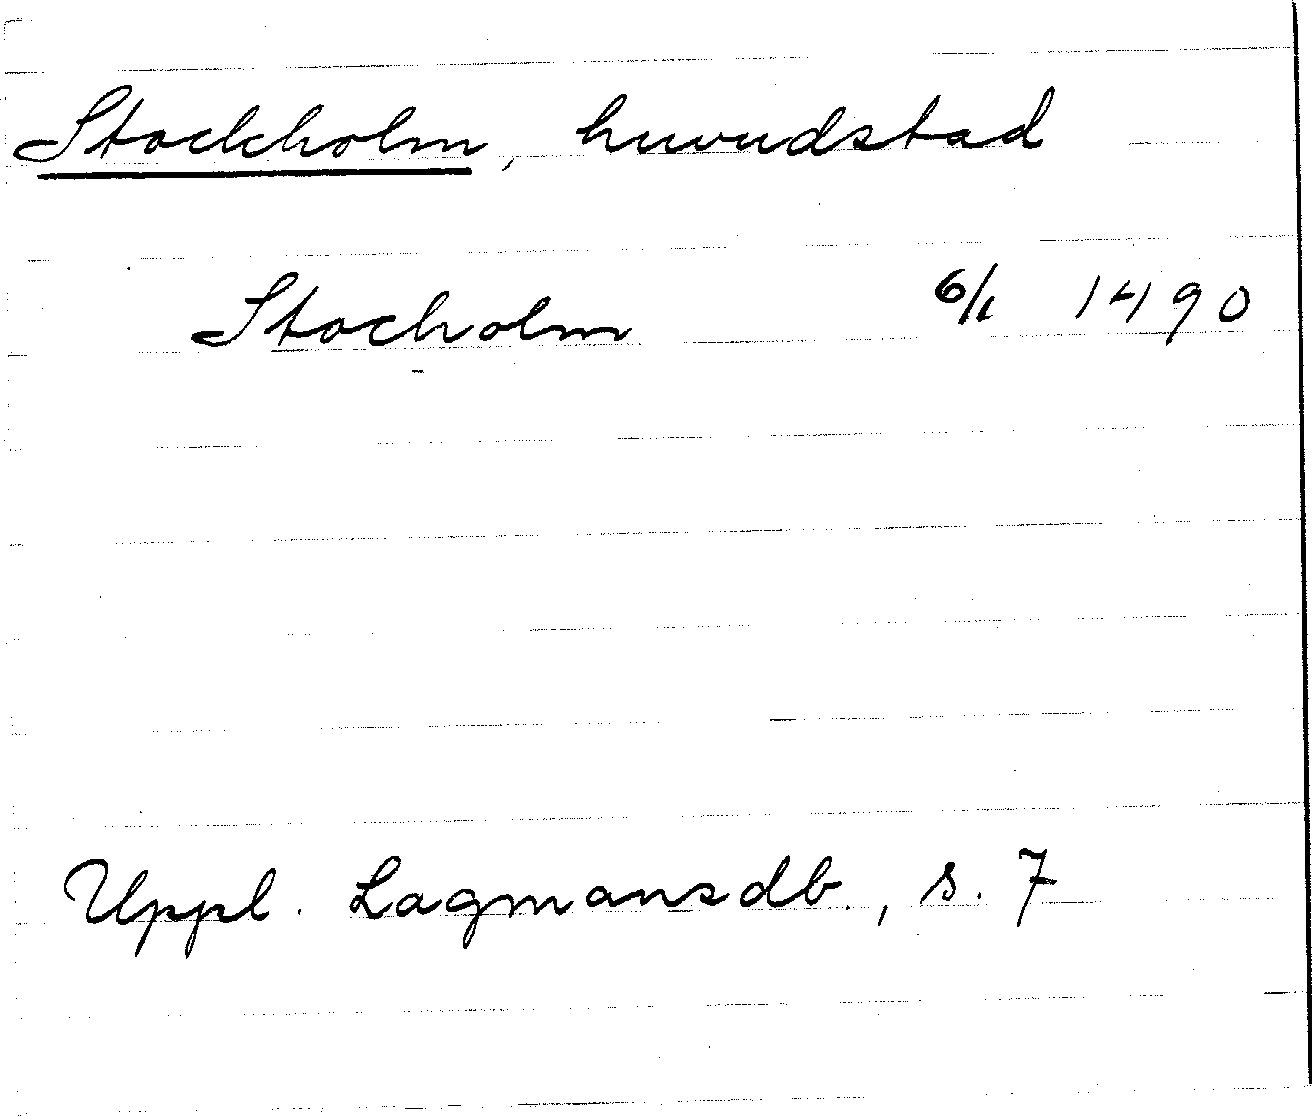 Stockholm, huvudstad
Stocholm 6/1 1490
Uppl. Lagmansdb., s. 7